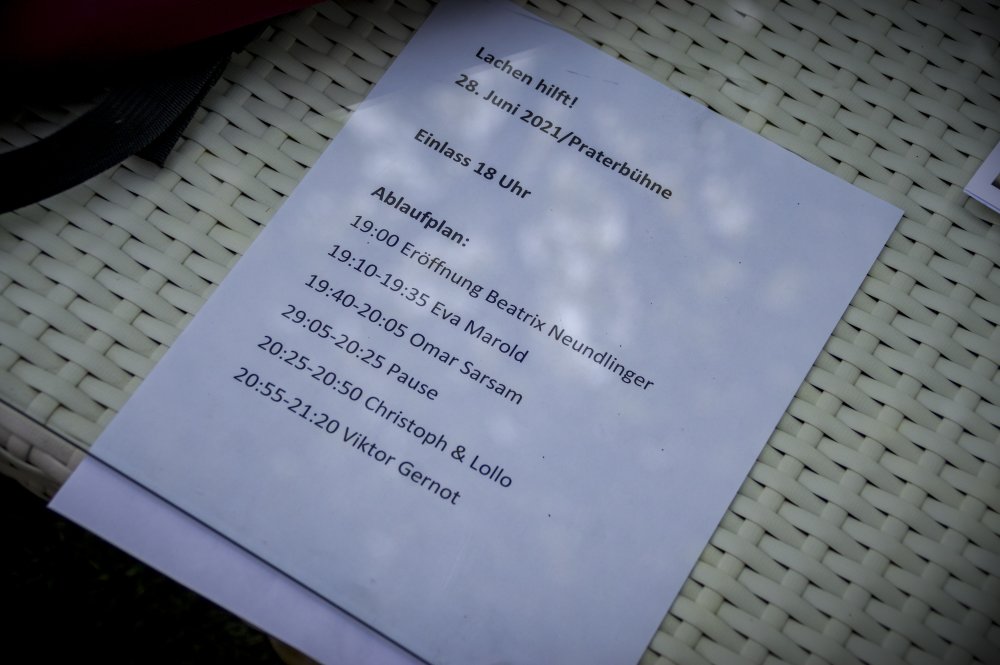 Lachen hilft!
28. Juni 2021/Praterbühne
Einlass 18 Uhr
Ablaufplan:
19:00 Eröffnung Beatrix Neundlinger
19:10-19:35 Eva Marold
19:40-20:05 Omar Sarsam
29:05-20:25 Pause
20:25-20:50 Christoph & Lollo
20:55-21:20 Viktor Gernot